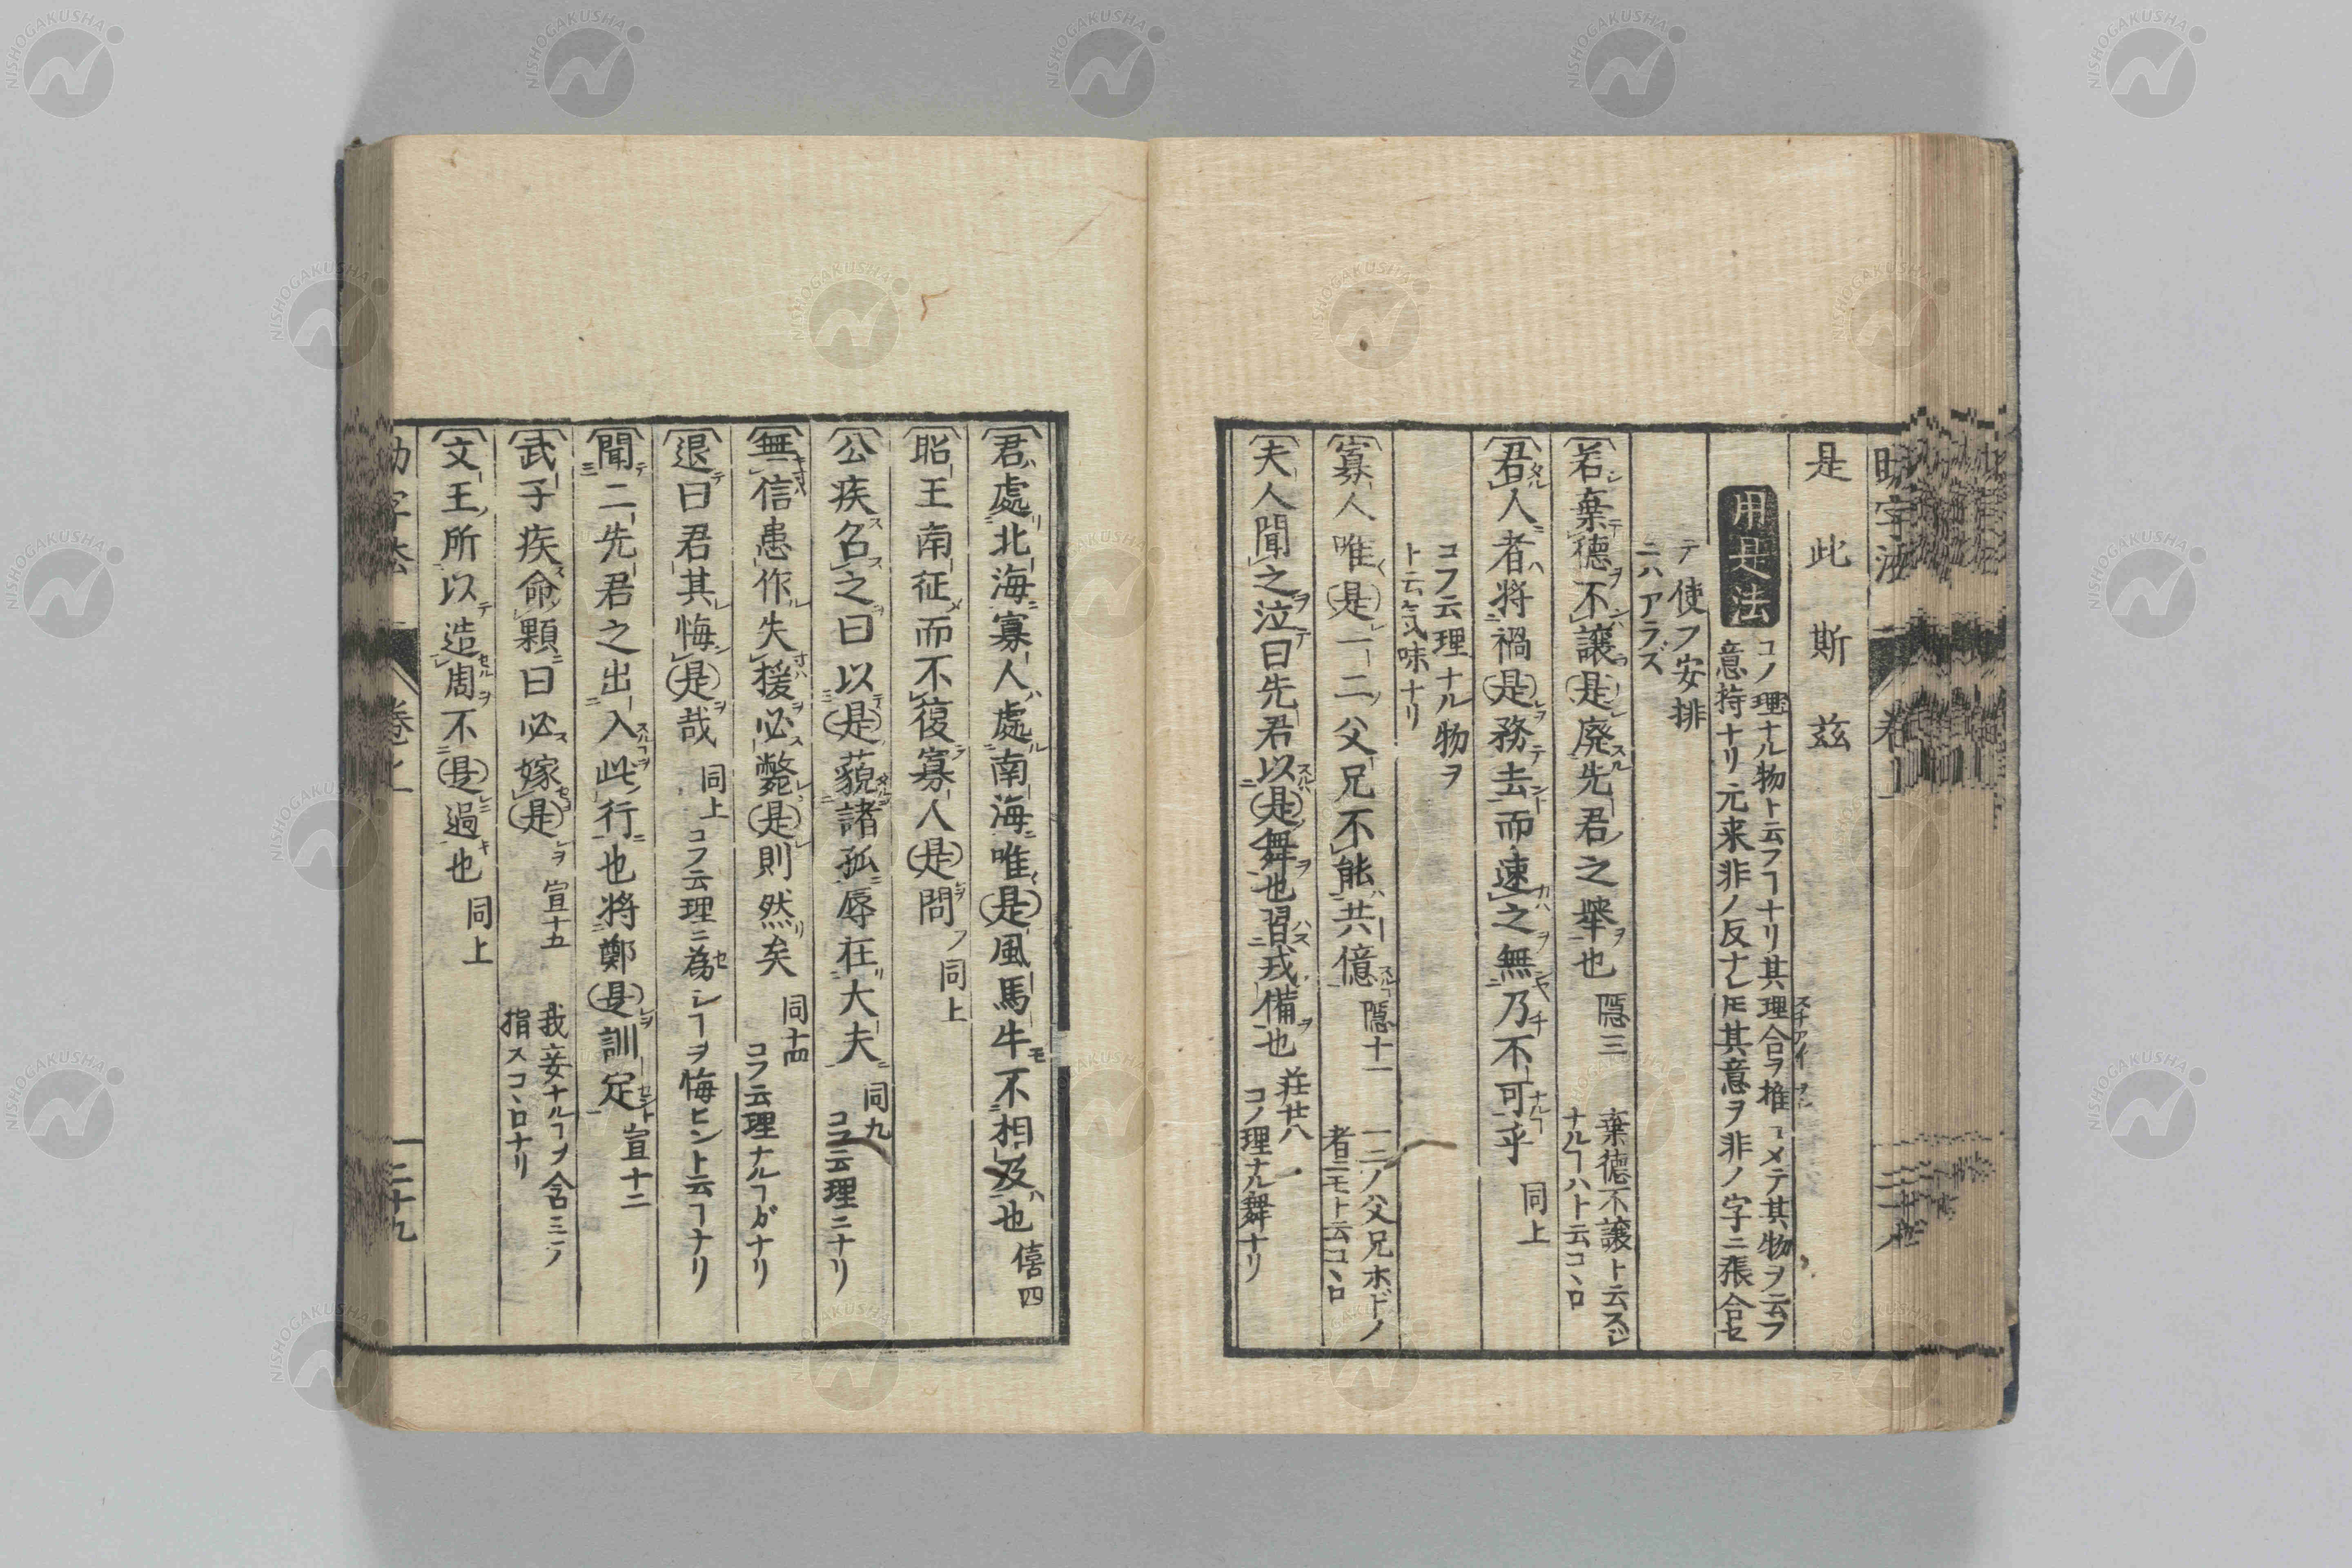 是此斯茲
用是法
コノ理ナル物ト云フヿナリ其理合ヲ推ヿメテ其物ヲ云フ
意持ナリ元来非ノ反ナレ𪜈其意ヲ非ノ字ニ張合セ
テ使フ安排
ニハアラズ
若棄德不讓是廃先君之舉也 隠三
棄徳不譲ト云スジ
ナルヿハト云コヽロ
君人者將禍是務去而速之無乃不可乎 同上
コフ云理ナル物ヲ
ト云気味ナリ
寡人唯是一二父兄不能共億 隠十一
一二ノ父兄ホドノ
者ニモト云コヽロ
夫人聞之泣曰先君以是舞也習戎備也 荘廿八
コノ理ナル舞ナリ
君處北海寡人處南海唯是風馬牛不相及也 僖四
昭王南征而不復寡人是問 同上
公疾召之曰以是藐諸孤辱在大夫 同九
コフ云理ニナリ
無信患作失援必斃是則然矣 同十四
コフ云理ナルヿダナリ
退曰君其悔是哉 同上
コフ云理ニ為シヿヲ悔ヒント云ヿナリ
聞二先君之出入此行也將鄭是訓定 宣十二
武子疾命顆曰必嫁是 宣十五
我妾ナルヿヲ含ミノ
指スコヽロナリ
文王所以造周不是過也 同上
二十九